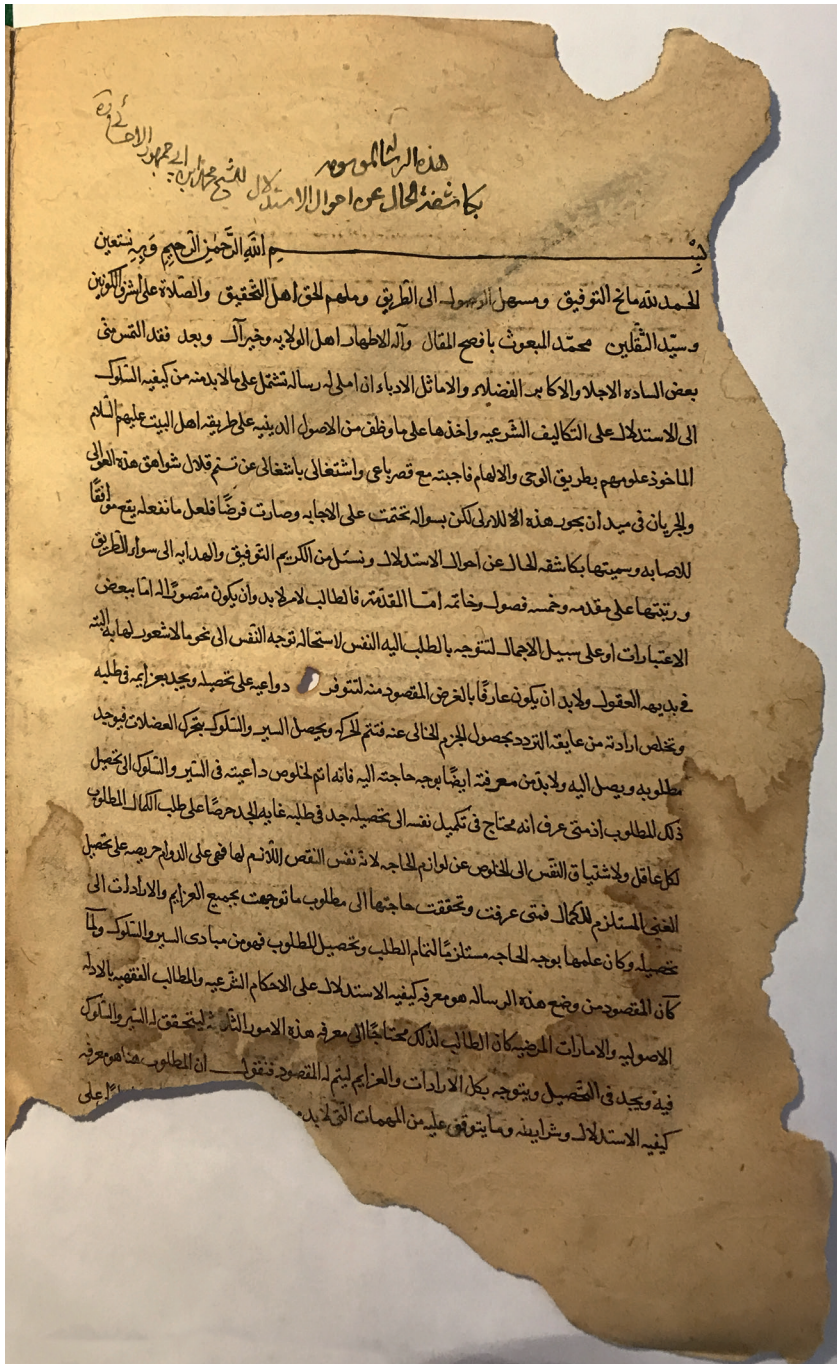 هذه الرسالة الموسومه
بكاشفة الحال عن احوال الاستدلال للشيخ محمد ابن ابي جمهور الاحسائي ره
بسم الله الرحمن الرحيم وبه نستعين
الحمد لله مانح التوفيق ومسهل الوصول الى الطريق وملهم الحق اهل التحقيق والصلاة على اشرف الكونين
وسيّد الثقلين محمّد المبعوث بافصح المقال وآله الاطهار اهل الولايه وخير آل وبعد فقد التمس منّي
بعض الساده الاجلاء والاكابر الفضلاء والاماثل الادباء ان املى له رسالة تشتمل على ما لابد منه من كيفيه السّلوك
الى الاستدلال على التكاليف الشرعيه واخذها على ما وظف من الاصول الدينيه على طريقه اهل البيت عليهم السّلام
الماخوذ علومهم بطريق الوحى والالهام فاجبته مع قصر باعى واشتغالى باشغالى عن تسنم قلال شواهق هذه العوالى
والجريان فى ميدان بحور هذه اللالى لكن بسواله تحتمت على الاجابه وصارت فرضًا فلعل ما نفعله يقع موافقًا
للاصابه وسميتها بكاشفه الحال عن احوال الاستدلال ونسئل من الكريم التوفيق والهدايه الى سواء الطريق
ورتبتها على مقدمه وخمسه فصول وخاتمه امّا المقدّمة فالطالب لامر لابد وان يكون متصورًا له امّا ببعض
الاعتبارات او على سبيل الاجمال لتتوجه بالطلب اليه النفس لاستحاله توجه النّفس الى نحو ما لا شعور لها به البتة
فى بديهه العقول ولابد ان يكون عارفًا بالغرض المقصود منه لتتوفر دواعيه على تحصيله ويجد بعزايمه فى طلبه
وتخلص ارادته من عايقه التردد بحصول الجزم الخالى عنه فتتم الحركه ويحصل السير والسّلوك بتحرك العضلات فيوجد
مطلوبه ويصل اليه ولابد من معرفته ايضًا بوجه حاجته اليه فانه اتم لخلوص داعيته فى السّير والسّلوك الى تحصيل
ذلك المطلوب اذ متى عرف انه محتاج فى تكميل نفسه الى تحصيله جد فى طلبه غايه الجد حرصًا على طلب الكمال المطلوب
لكل عاقل ولاشتياق النّفس الى الخلوص عن لوازم الحاجه لانّه نفس النقص اللّازم لها فهى على الدوام حريصه على تحصيل
الغنى المستلزم للكمال فمتى عرفت وتحققت حاجتها الى مطلوب ما توجهت بجميع العزايم والارادات الى
تحصيله وكان علمها بوجه الحاجه مستلزمًا لتمام الطلب وتحصيل المطلوب فهو من مبادى السير والسّلوك ولمّا
كان المقصود من وضع هذه الرساله هو معرفه كيفيه الاستدلال على الاحكام الشّرعيه والمطالب الفقهيه بالادله
الاصوليه والامارات المرضيه كان الطالب لذلك محتاجًا الى معرفه هذه الامور الثلاثة ليتحقق له السّير والسّلوك
فيه ويجد فى التحصيل ويتوجه بكل الارادات والعزايم ليتم له المقصود فنقول ان المطلوب هنا هو معرفه
كيفيه الاستدلال وشرايطه وما يتوقف عليه من المهمات التى لابد على